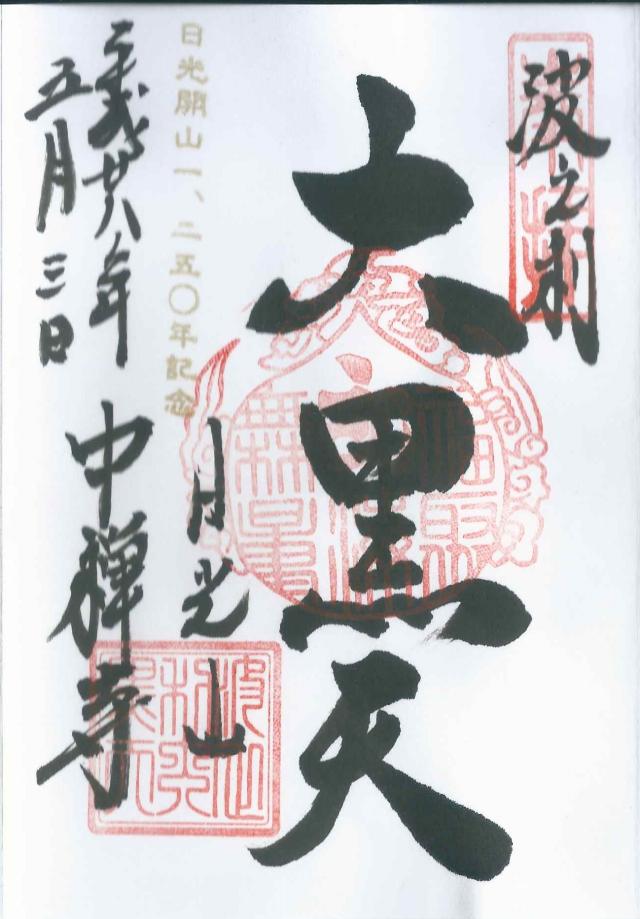 波之利
大黒天
福聚海無量
日光山
日光開山一、二五〇年記念
中禅寺
平成廿八年
五月三日